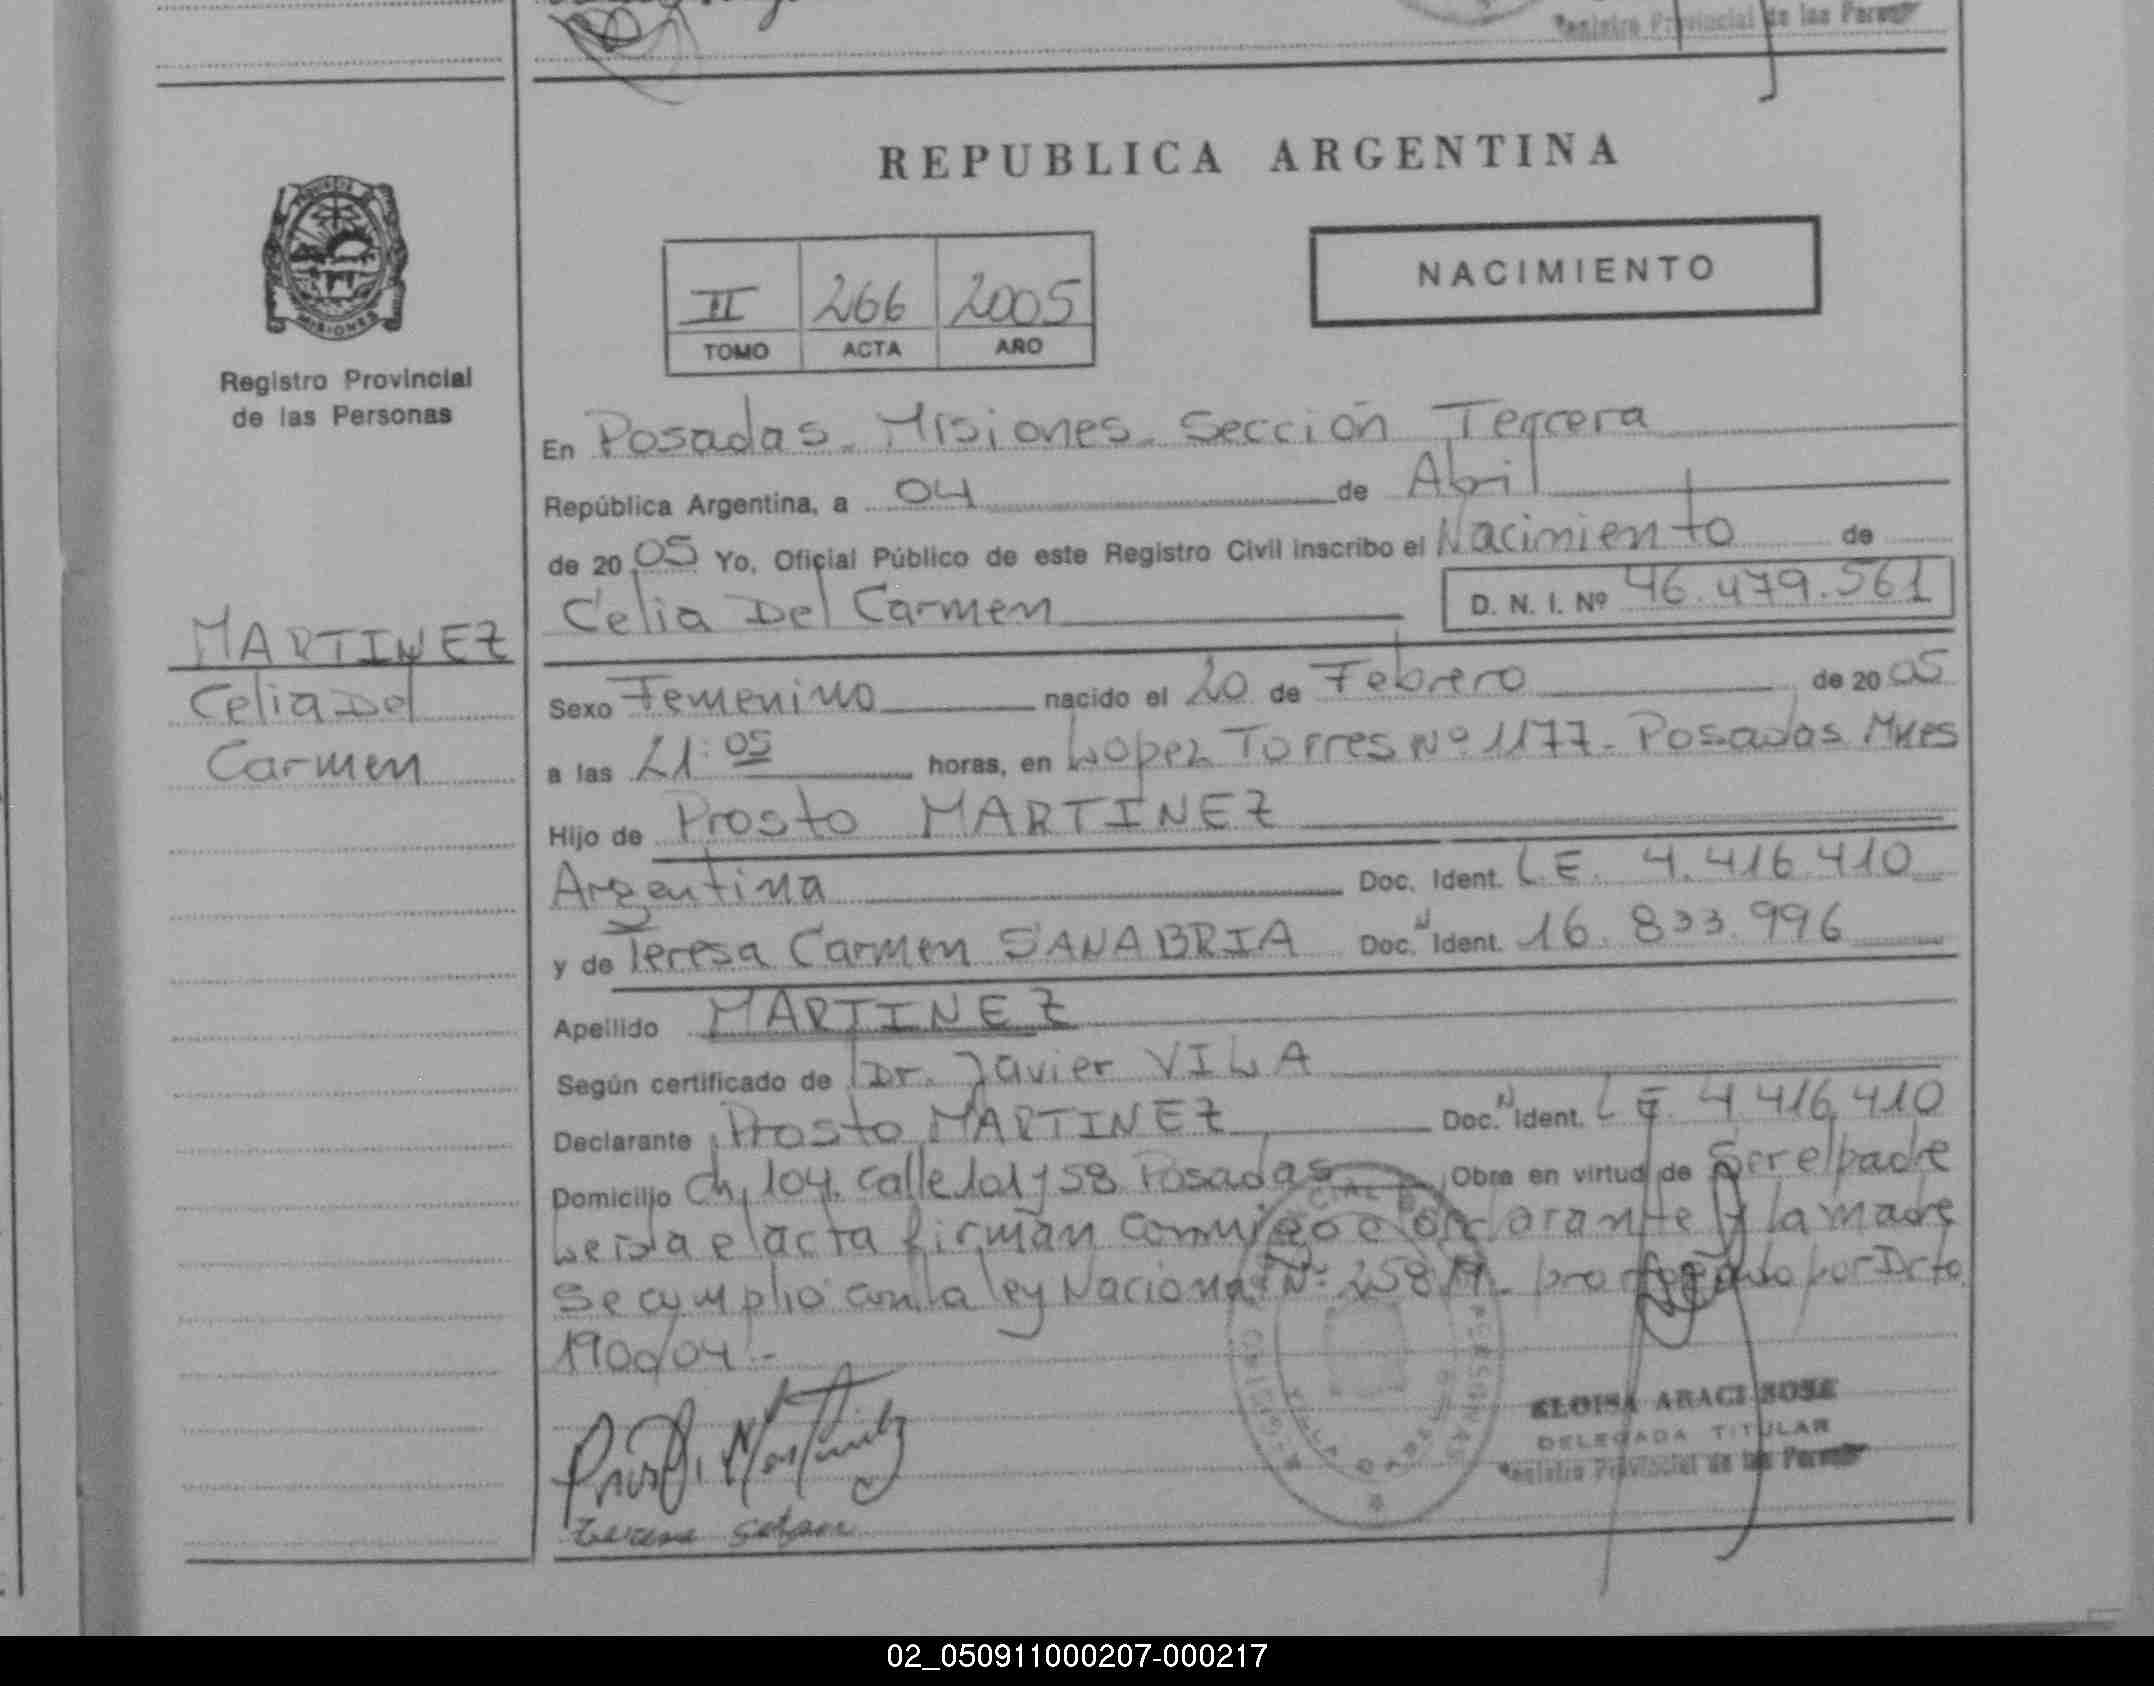 Registro Provincial de las Person
REPUBLICA ARGENTINA
NACIMIENTO
II 266 2005
TOMO ACTA AÑO
MISIONES
Registro Provincial
de las Personas
MARTINEZ
Celia Del
Carmen
En Posadas. Misiones. Sección Tercera
República Argentina, a 04 de Abril
de 2005 Yo, Oficial Público de este Registro Civil inscribo el Nacimiento de
Celia Del Carmen D. N. I. Nº 46.479.561
Sexo Femenino nacido el 20 de Febrero de 2005
a las 21:05 horas, en Lopez Torres Nº 1177. Posadas Mnes
Hijo de Prosto MARTINEZ
Argentina Doc. Ident. L.E. 4.416.410
y de Teresa Carmen SANABRIA Doc. N Ident. 16.833.996
Apellido MARTINEZ
Según certificado de Dr. Javier VILA
Declarante Prosto MARTINEZ Doc. N Ident. L E. 4 416.410
Domicilio Ch. 104. calle 101 y 58 Posadas Obra en virtud de Ser el padre
Leida el acta firman conmigo el declarante y la madre
Se cumplio con la ley Nacional Nº 258 por Dcto
190/04.-
ELOISA ARACI SOSA
DELEGADA TITULAR
Registro Provincial de las Person
02_050911000207-000217